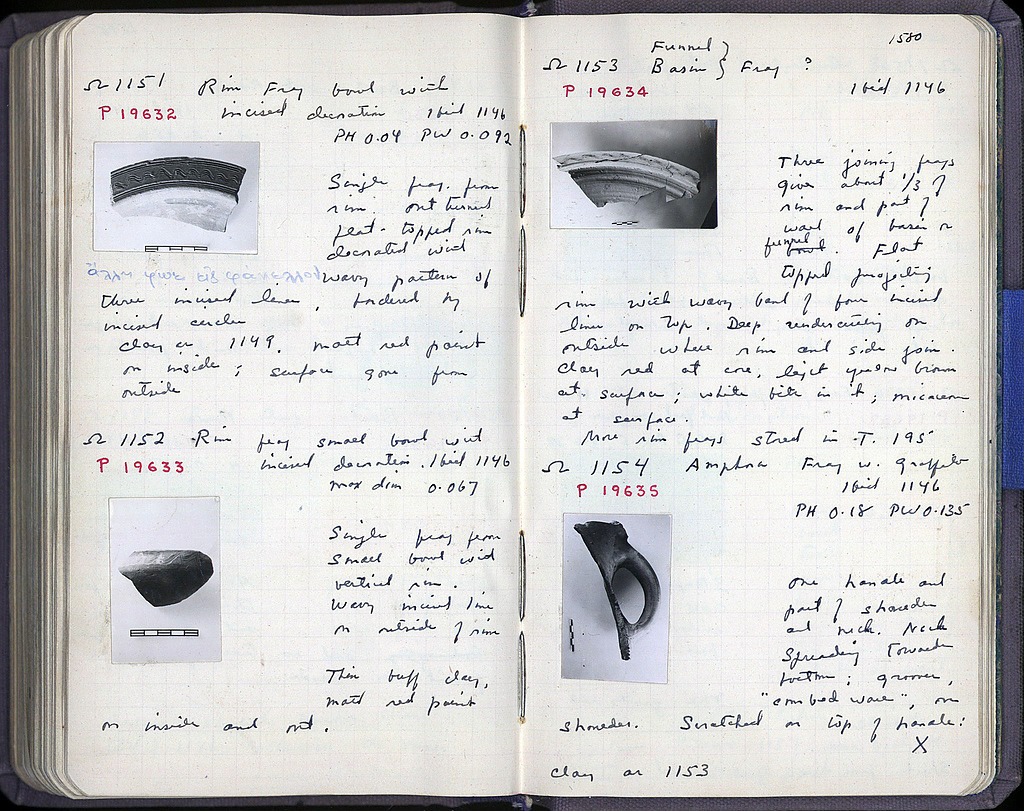 Ω 1151 Rim Frag bowl with
P 19632 incised decoration Ibid 1146
PH 0.04 PW 0.092
Single frag. from
rim out turned
flat-topped rim
decorated with
ἄλλη φωτ. εἰς φάκελλον
wavy pattern of
three incised lines, bordered by
incised circles
Clay as 1149. matt red paint
on inside; surface gone from
outside
Ω 1152 Rim frag small bowl with
P 19633 incised decoration. Ibid 1146
max dim 0.067
Single frag from
small bowl with
vertical rim.
Wavy incised line
on outside of rim
Thin buff clay,
matt red paint
on inside and out.
1580
Funnel }
Ω 1153 Basin } Frag ?
P 19634 Ibid 1146
Three joining frags
give about 1/3 of
rim and part of
wall of basin or
funnel. Flat
topped projecting
rim with wavy band of four incised
lines on top. Deep undercutting on
outside where rim and side join.
Clay red at core, light yellow brown
at surface; white bits in it; micaceous
at surface.
More rim frags stored in T. 195
Ω 1154 Amphora Frag w. graffito
P 19635 Ibid 1146
PH 0.18 PW 0.135
One handle and
part of shoulder
and neck. Neck
spreading towards
bottom; grooves,
"combed ware", on
shoulder. Scratched on top of handle:
X
Clay as 1153